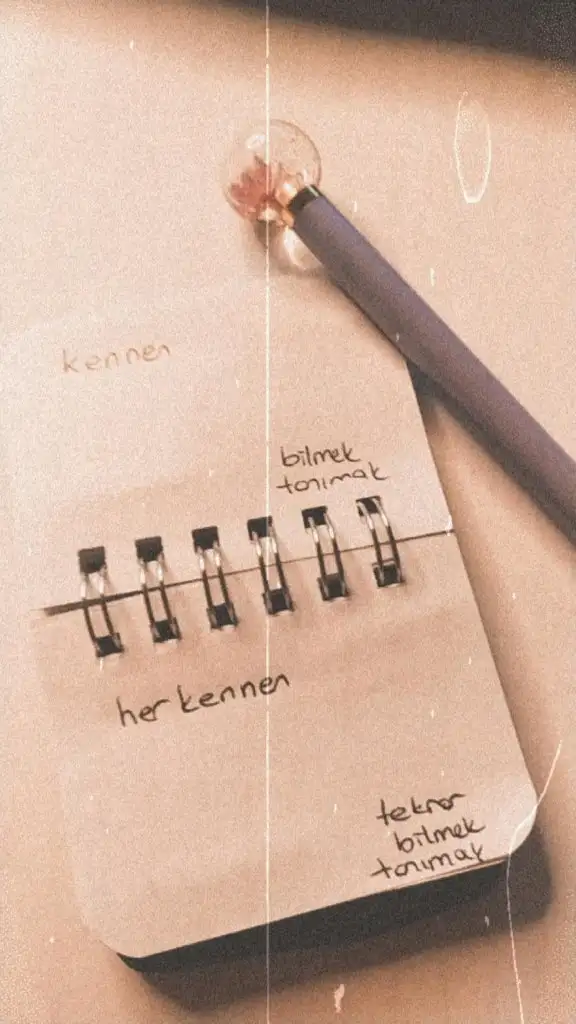 kennen
bilmek
tanımak
her kennen
tekrar
bilmek
tanımak